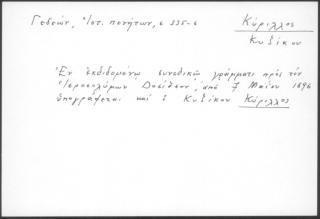 Γεδεών, Ἱστ. πενήτων, σ 335-6
Κύριλλος
Κυζίκου
Ἐν ἐκδιδομένῳ συνοδικῷ γράμματι πρὸς τὸν
Ἱεροσολύμων Δοσίθεον, ἀπὸ 7 Μαΐου 1696
ὑπογράφεται καὶ ὁ Κυζίκου Κύριλλος